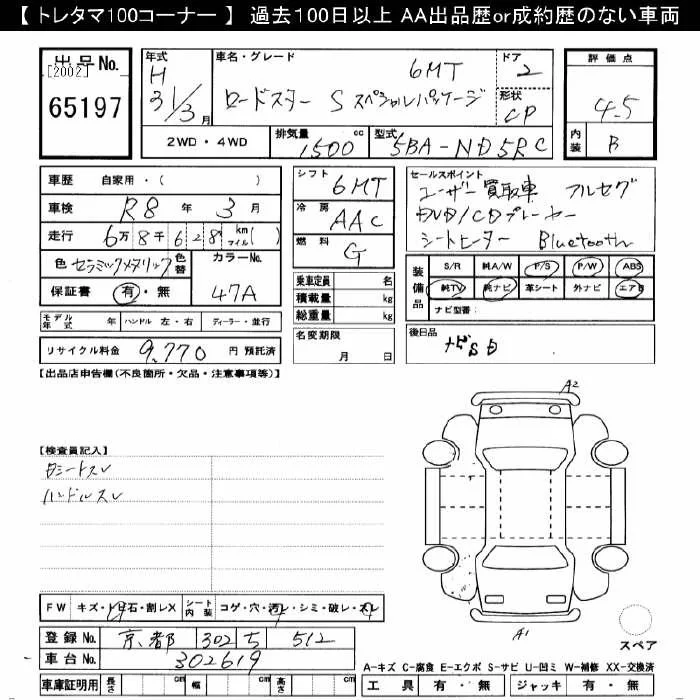 【 トレタマ100コーナー 】 過去100日以上 AA出品歴or成約歴のない車両
出品No.
[2002]
65197
年式
H
31/3月
車名・グレード
6MT
ロードスター S スペシャルパッケージ
ドア
2
形状
CP
評価点
4.5
内装
B
2WD・4WD
排気量
1500cc
型式
5BA-ND5RC
車歴 自家用・( )
車検 R8年 3月
走行 6万8千628 km マイル( )
色 セラミックメタリック 色替
カラーNo. 47A
保証書 有・無
シフト 6MT
冷房 AAC
燃料 G
乗車定員 名
積載量 kg
総重量 kg
名変期限
月 日
セールスポイント
ユーザー買取車 フルセグ
DVD/CDプレーヤー
シートヒーター Bluetooth
装備品
S/R 純A/W P/S P/W ABS
純TV 純ナビ 革シート 外ナビ エアB
ナビ型番:
後日品
ナビSD
モデル年式 年 ハンドル 左・右 ディーラー・並行
リサイクル料金 9,770 円 預託済
【出品店申告欄(不良箇所・欠品・注意事項等)】
【検査員記入】
シートスレ
ハンドルスレ
A2
A1
FW キズ・トビ石・割レX シート内装 コゲ・穴・汚レ・シミ・破レ・スレ
登録No. 京都 302 ち 512
車台No. 302619
車庫証明用 長さ cm 幅 cm 高さ cm
スペア
A-キズ C-腐食 E-エクボ S-サビ U-凹ミ W-補修 XX-交換済
工具 有・無 ジャッキ 有・無